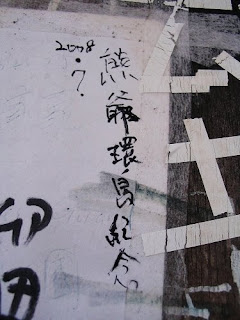 2008
.7
熊爺環島紀念